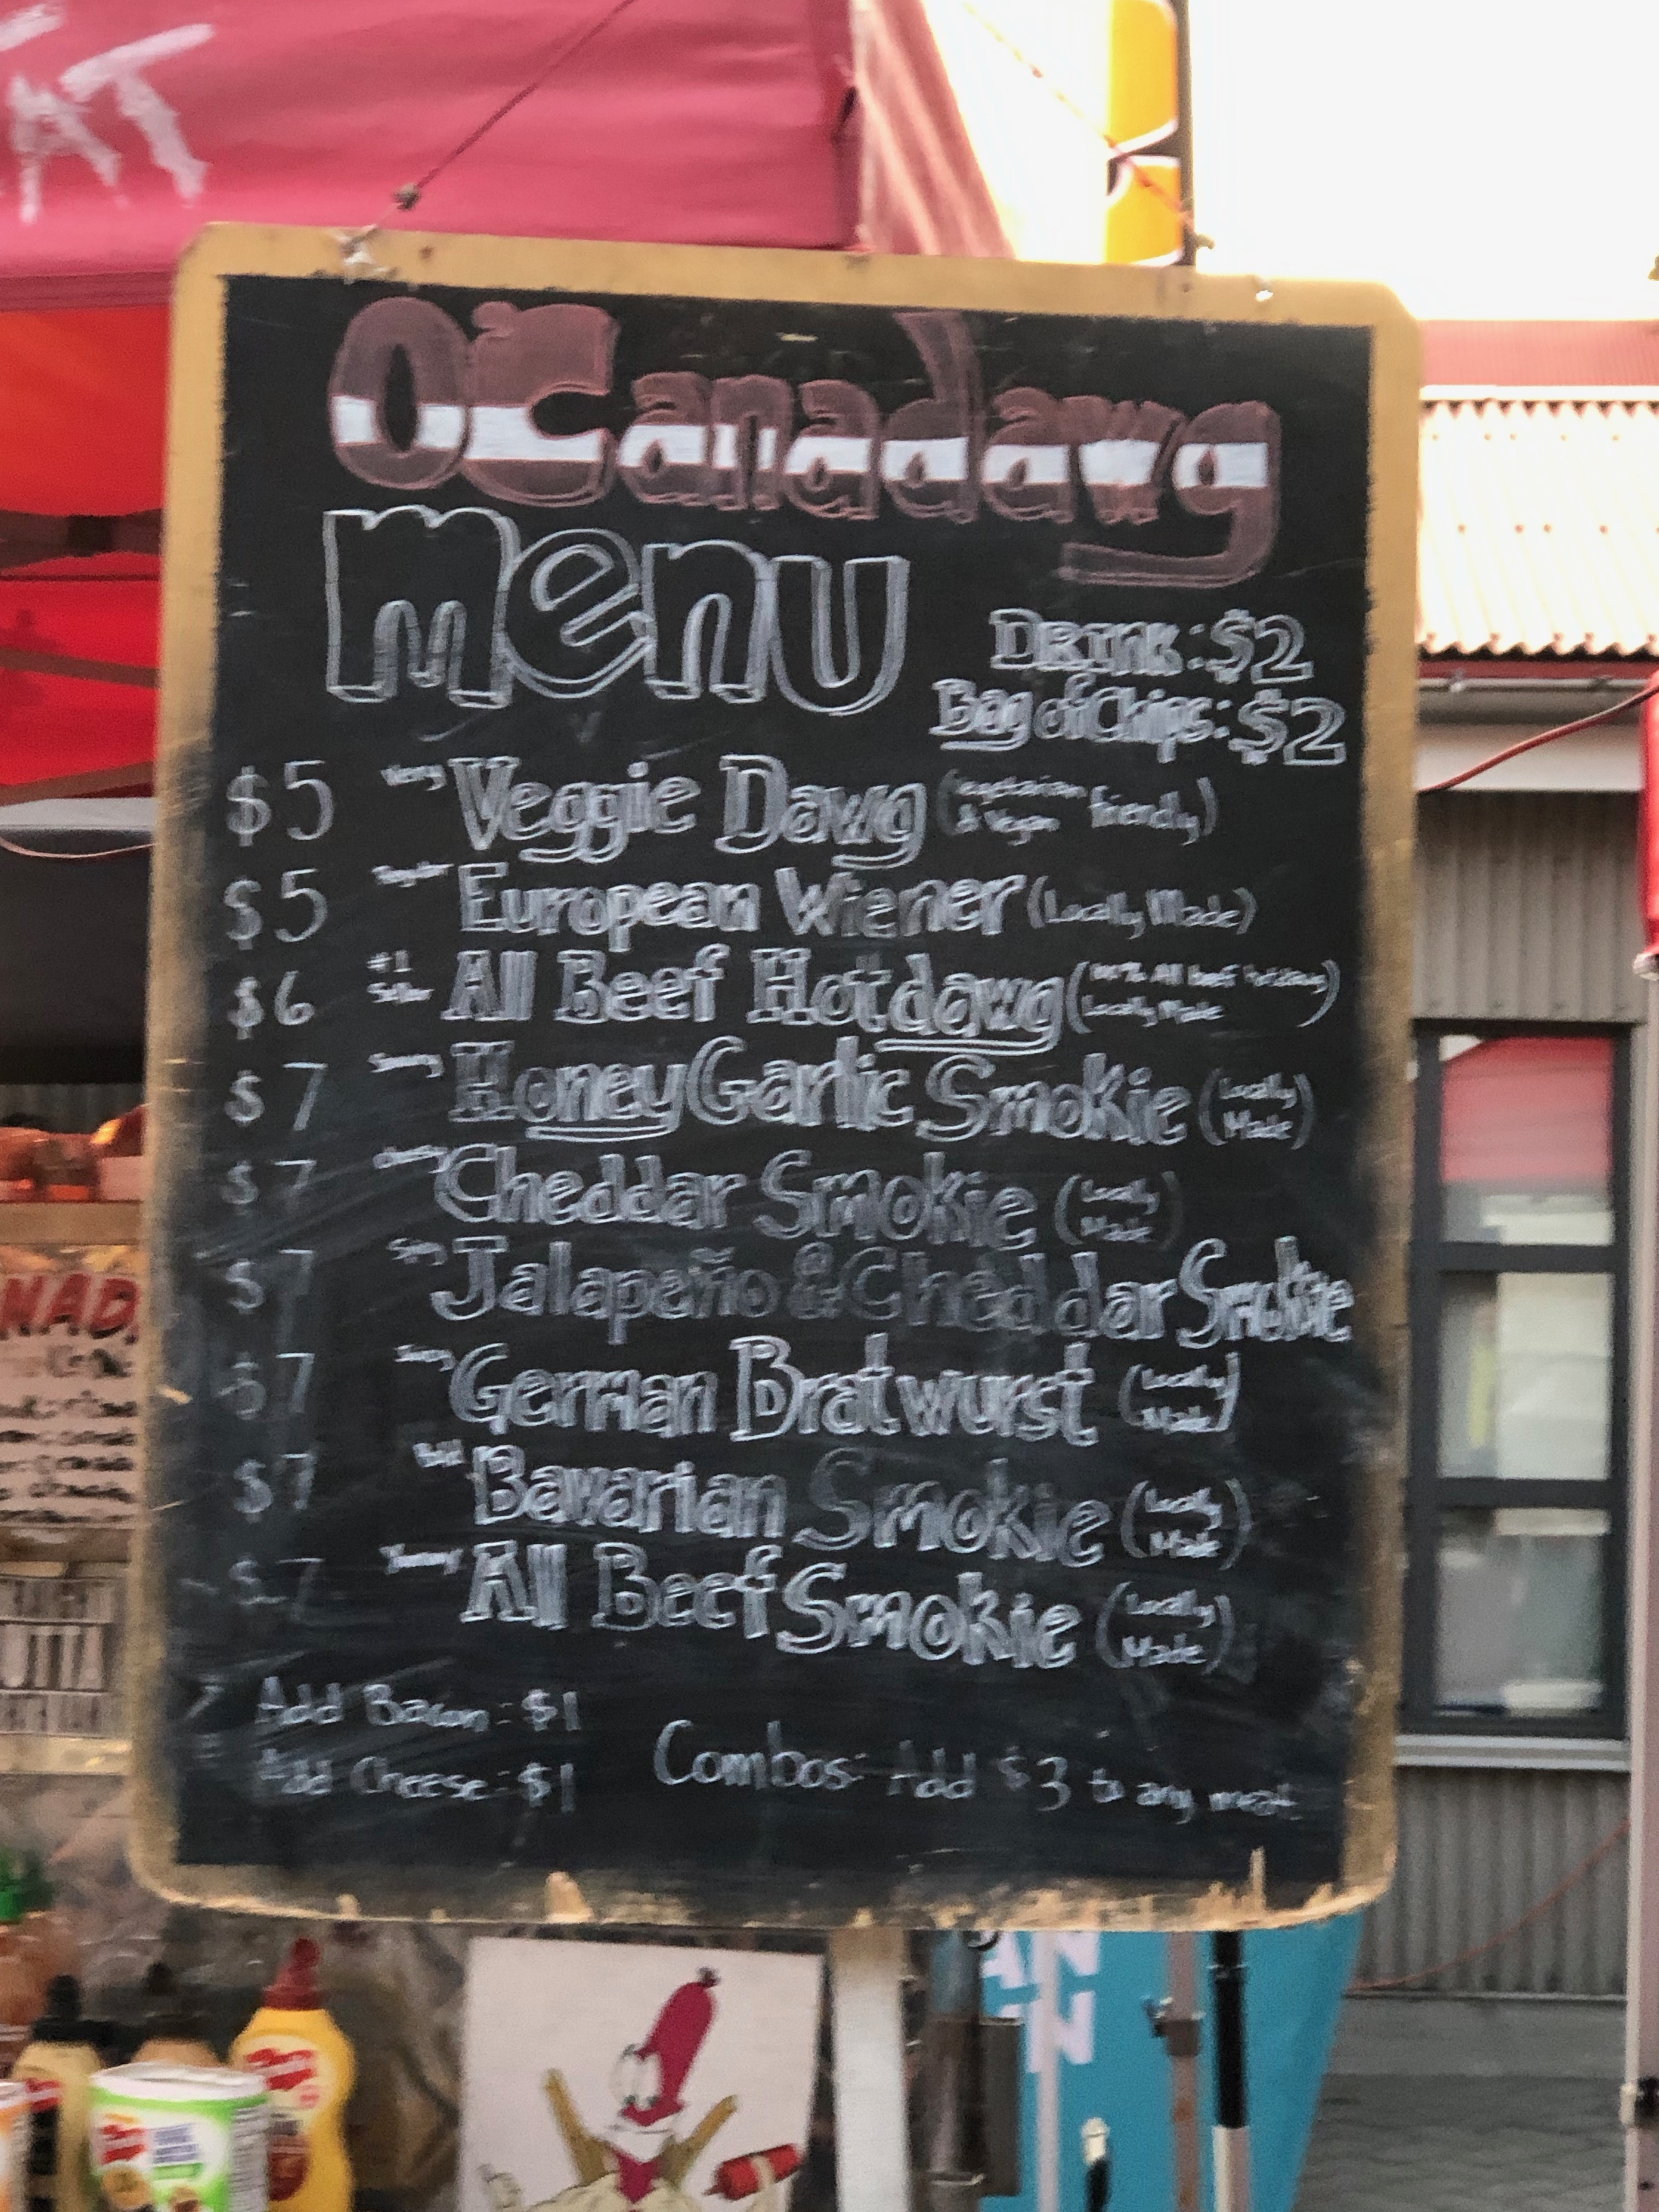 O'Canadawg
Menu
Drink: $2
Bag of Chips: $2
$5 Veggie Dawg (vegetarian & Vegan friendly)
$5 European Wiener (Locally Made)
$6 #1 Seller All Beef Hotdawg (100% All beef hotdawg) Locally Made
$7 Honey Garlic Smokie (Locally Made)
$7 Cheddar Smokie (Locally Made)
$7 Spicy Jalapeño & Cheddar Smokie
$7 German Bratwurst (Locally Made)
$7 Bavarian Smokie (Locally Made)
$7 Yummy All Beef Smokie (Locally Made)
Add Bacon: $1
Add Cheese: $1
Combos: Add $3 to any meat